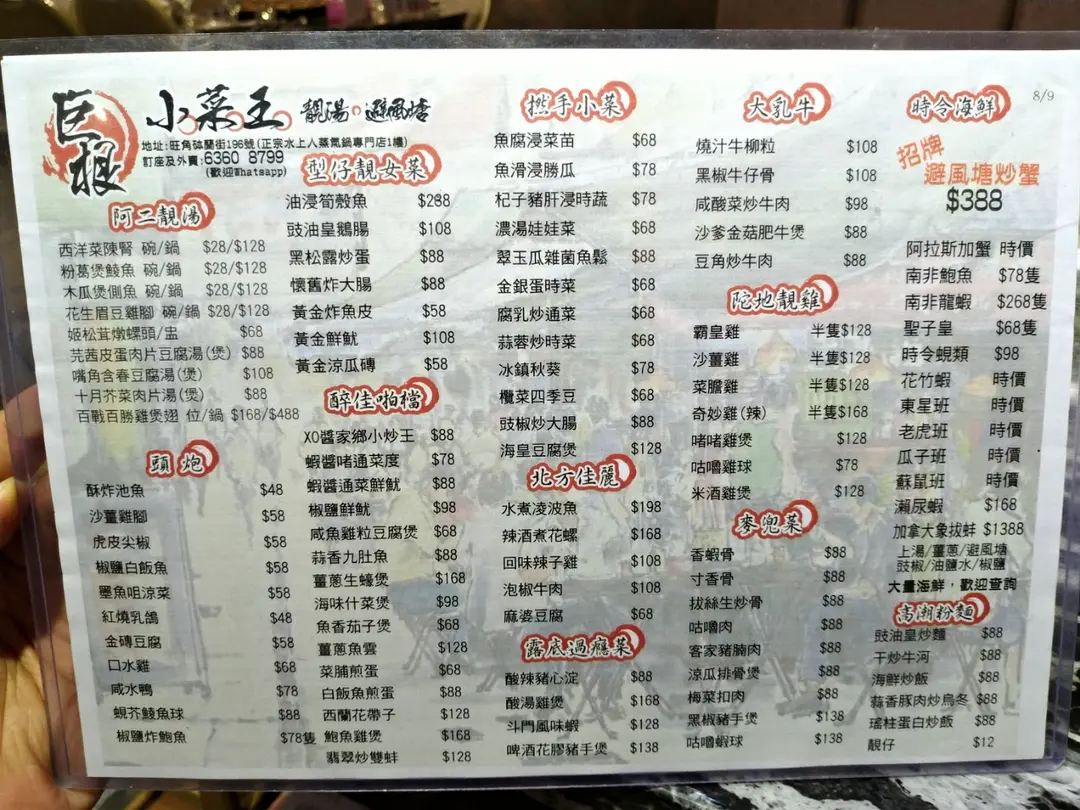 巨根
小菜王 靚湯。避風塘
地址:旺角砵蘭街196號(正宗水上人蒸氣鍋專門店1樓)
訂座及外賣:6360 8799
(歡迎Whatsapp)
阿二靚湯
西洋菜陳腎 碗/鍋 $28/$128
粉葛煲鯪魚 碗/鍋 $28/$128
木瓜煲側魚 碗/鍋 $28/$128
花生眉豆雞腳 碗/鍋 $28/$128
姬松茸燉螺頭/盅 $68
芫茜皮蛋肉片豆腐湯(煲) $88
嘴角含春豆腐湯(煲) $108
十月芥菜肉片湯(煲) $88
百戰百勝雞煲翅 位/鍋 $168/$488
頭炮
酥炸池魚 $48
沙薑雞腳 $58
虎皮尖椒 $58
椒鹽白飯魚 $58
墨魚咀涼菜 $58
紅燒乳鴿 $48
金磚豆腐 $58
口水雞 $68
咸水鴨 $78
蜆芥鯪魚球 $88
椒鹽炸鮑魚 $78隻
型仔靚女菜
油浸筍殼魚 $288
豉油皇鵝腸 $108
黑松露炒蛋 $88
懷舊炸大腸 $88
黃金炸魚皮 $58
黃金鮮魷 $108
黃金涼瓜磚 $58
醉佳啪檔
XO醬家鄉小炒王 $88
蝦醬啫通菜度 $78
蝦醬通菜鮮魷 $88
椒鹽鮮魷 $98
咸魚雞粒豆腐煲 $68
蒜香九肚魚 $88
薑蔥生蠔煲 $168
海味什菜煲 $98
魚香茄子煲 $68
薑蔥魚雲 $128
菜脯煎蛋 $68
白飯魚煎蛋 $88
西蘭花帶子 $128
鮑魚雞煲 $168
翡翠炒雙蚌 $128
撚手小菜
魚腐浸菜苗 $68
魚滑浸勝瓜 $78
杞子豬肝浸時蔬 $78
濃湯娃娃菜 $68
翠玉瓜雜菌魚鬆 $88
金銀蛋時菜 $68
腐乳炒通菜 $68
蒜蓉炒時菜 $68
冰鎮秋葵 $78
欖菜四季豆 $68
豉椒炒大腸 $88
海皇豆腐煲 $128
北方佳麗
水煮凌波魚 $198
辣酒煮花螺 $168
回味辣子雞 $108
泡椒牛肉 $108
麻婆豆腐 $68
露底過癮菜
酸辣豬心淀 $88
酸湯雞煲 $168
斗門風味蝦 $128
啤酒花膠豬手煲 $138
大乳牛
燒汁牛柳粒 $108
黑椒牛仔骨 $108
咸酸菜炒牛肉 $98
沙爹金菇肥牛煲 $88
豆角炒牛肉 $88
陀地靚雞
霸皇雞 半隻$128
沙薑雞 半隻$128
菜膽雞 半隻$128
奇妙雞(辣) 半隻$168
啫啫雞煲 $128
咕嚕雞球 $78
米酒雞煲 $128
麥兜菜
香蝦骨 $88
寸香骨 $88
拔絲生炒骨 $88
咕嚕肉 $88
客家豬腩肉 $88
涼瓜排骨煲 $88
梅菜扣肉 $88
黑椒豬手煲 $138
咕嚕蝦球 $138
時令海鮮
8/9
招牌
避風塘炒蟹
$388
阿拉斯加蟹 時價
南非鮑魚 $78隻
南非龍蝦 $268隻
聖子皇 $68隻
時令蜆類 $98
花竹蝦 時價
東星班 時價
老虎班 時價
瓜子班 時價
蘇鼠班 時價
瀨尿蝦 $168
加拿大象拔蚌 $1388
上湯/薑蔥/避風塘
豉椒/油鹽水/椒鹽
大量海鮮，歡迎查詢
高潮粉麵
豉油皇炒麵 $88
干炒牛河 $88
海鮮炒飯 $88
蒜香豚肉炒烏冬 $88
瑤柱蛋白炒飯 $88
靚仔 $12